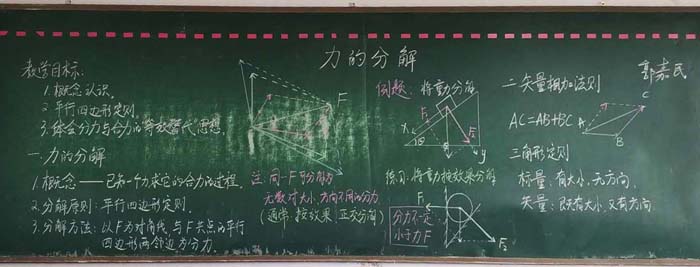 力的分解
郭嘉民
教学目标:
1.概念认识。
2.平行四边形定则。
3.体会分力与合力的等效替代思想。
一.力的分解
1.概念——已知一个力求它的合力的过程。
2.分解原则:平行四边形定则。
3.分解方法:以F为对角线,与F共点的平行
四边形两邻边为分力。
F
注:同一F可分解为
无数对大小、方向不同的分力
(通常:按效果,正交分解)
例题:将重力分解
F₁
F₂
x
y
θ
G
练习:将重力按效果分解
分力不一定
小于力F
F₂
二.矢量相加法则
AC=AB+BC
A
B
C
三角形定则
标量:有大小,无方向。
矢量:既有大小,又有方向。